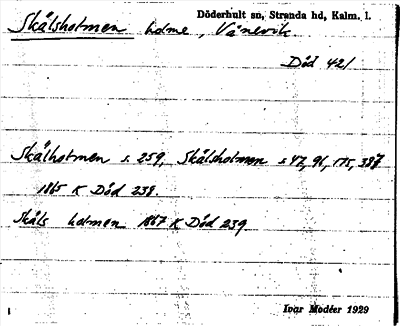 Döderhult sn, Stranda hd, Kalm. l.
Skålsholmen holme, Vånevik.
Död 421
Skålholmen s. 259, Skålsholmen s 47, 91, 175, 387
1865 K Död 238.
Skåls holmen 1867 K Död 239
Ivar Modéer 1929